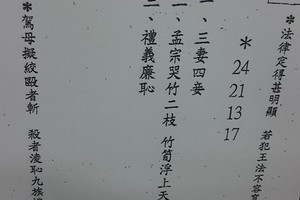 *法律定得甚明顯 若犯王法不容
*
24
21
13
17
一、三妻四妾
一、孟宗哭竹二枝 竹筍浮上天
二、禮義廉恥
*駕母擬絞毆者斬 殺者凌恥九族